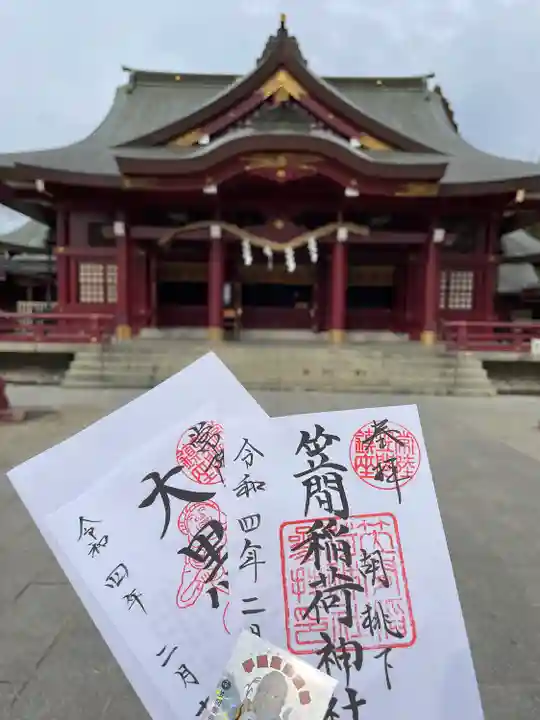 奉拝
胡桃下
笠間稲荷神社
令和四年二月
大黒
令和四年二月